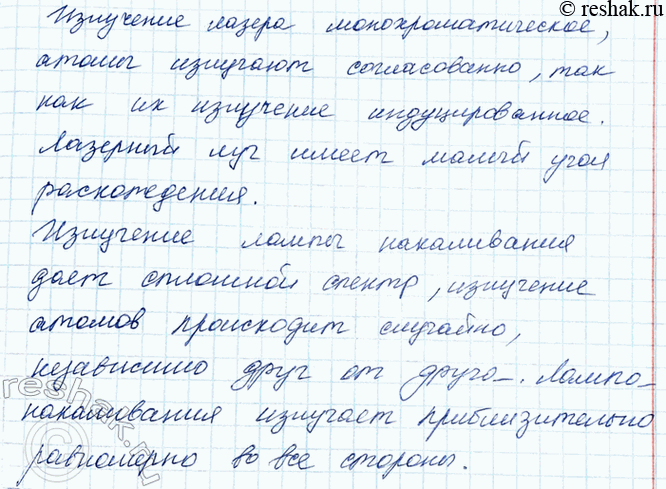 © reshak.ru
Излучение лазера монохроматическое,
атомы излучают согласованно, так
как их излучение индуцированное.
Лазерный луч имеет малый угол
расхождения.
Излучение лампы накаливания
дает сплошной спектр, излучение
атомов происходит случайно,
независимо друг от друга. Лампа
накаливания излучает приблизительно
равномерно во все стороны.
reshak.ru